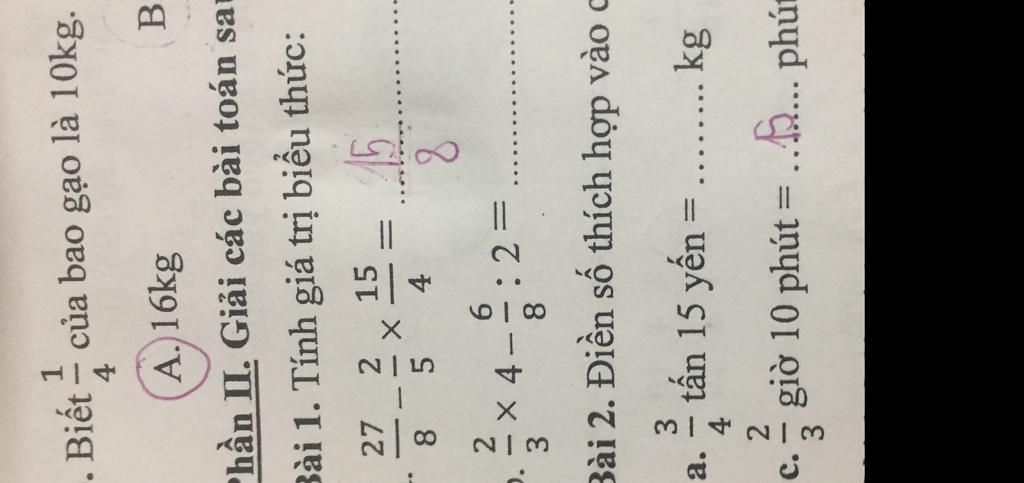 . Biết 1/4 của bao gạo là 10kg.
A. 16kg B
Phần II. Giải các bài toán sau
Bài 1. Tính giá trị biểu thức:
. 27/8 − 2/5 × 15/4 = 15/8
. 2/3 × 4 − 6/8 : 2 = ..........
Bài 2. Điền số thích hợp vào c
a. 3/4 tấn 15 yến = .......... kg
c. 2/3 giờ 10 phút = ...15... phút